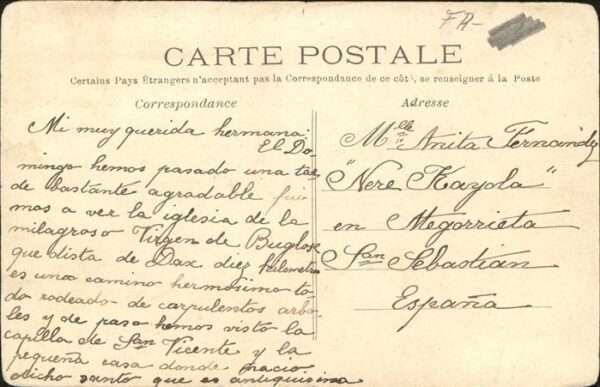 FR-
CARTE POSTALE
Certains Pays Étrangers n'acceptant pas la Correspondance de ce côté, se renseigner à la Poste
Correspondance
Mi muy querida hermana:
El Do-
mingo hemos pasado una tar
de bastante agradable fui
mos a ver la iglesia de la
milagroso Virgen de Buglose
que dista de Dax diez kilometro
es una camino hermosimo to
do rodeado de carpulentos arbo-
les y de paso hemos visto la
capilla de San Vicente y la
pequeña casa donde nacio
dicho santo que es antiquisima
Adresse
Mlle Anita Fernandez
"Nere Kayola"
en Ategorrieta
San Sebastian
España